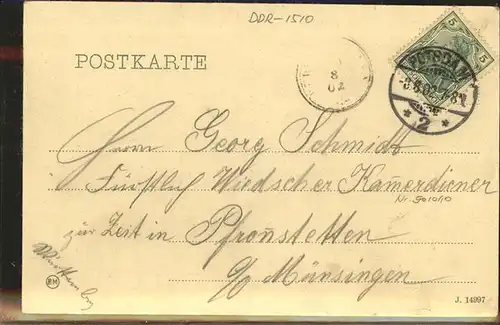 DDR-1510
POSTKARTE
5
5
POTSDAM
-8.8.02.7-8V.
* 2 *
8
02
Herrn Georg Schmidt
Fürstlich Wiedscher Kammerdiener
Nr. 901010
zur Zeit in Pfronstetten
Württemberg
o/o Münsingen
RM
J. 14997